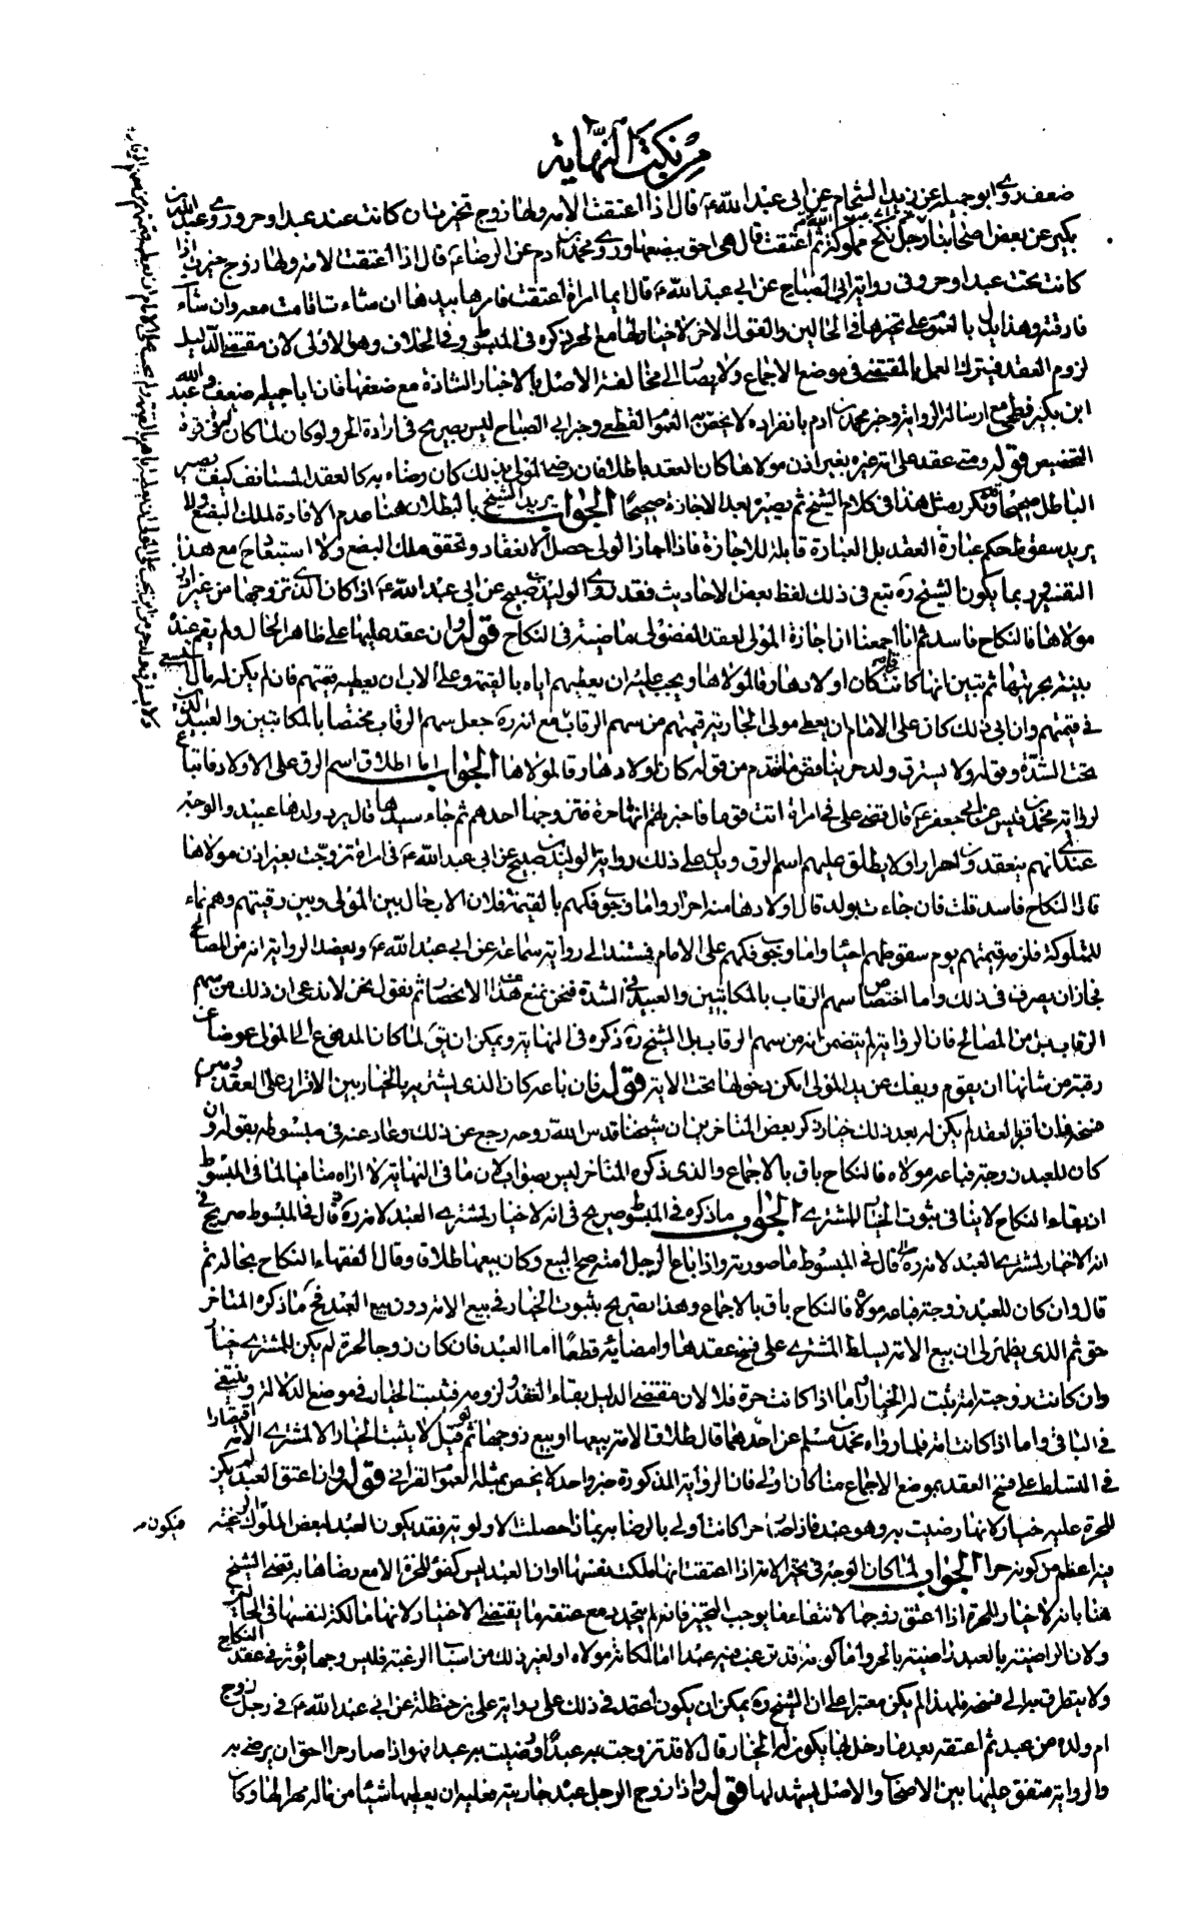 من نكت النهاية
ضعف روى ابو جميلة عن زيد الشحام عن ابى عبد الله ع قال اذا اعتقت الامة ولها زوج تخيرت ان كانت عند عبد او حر وروى عبد الله بن
بكير عن بعض اصحابنا رجل نكح مملوكة ثم اعتقت قال هى احق ببضعها وروى محمد بن ادم عن الرضا ع قال اذا اعتقت الامة ولها زوج خيرت اذا
كانت تحت عبد او حر وفى رواية ابى الصباح عن ابى عبد الله ع قال ايما امرأة اعتقت فامرها بيدها ان شاءت اقامت معه وان شاءت
فارقته وهذا يدل بالعموم على تخيرها فى الحالين والقول الاخر لا خيار لها مع الحر ذكره فى المبسوط وفى الخلاف وهو الاولى لان مقتضى الدليل
لزوم العقد فيترك العمل بالمقتضى فى موضع الاجماع ولا يصار الى مخالفة الاصل بالاخبار الشاذة مع ضعفها فان ابا جميلة ضعف وعبد الله
ابن بكير فطحى مع ارسالة الرواية وخبر محمد بن ادم بانفراده لا يخص به العموم القطعى وخبر ابى الصباح ليس بصريح فى ارادة الحر ولو كان لما كان فى قوة
التخصيص قوله ومتى عقد على امة غيره بغير اذن مولاها كان العقد باطلا فان رضى المولى بذلك كان رضاه به كالعقد المستانف كيف يصير
الباطل صحيحا وتكرر مثل هذا فى كلام الشيخ ثم يصير بعد الاجازة صحيحا الجواب يريد الشيخ بالبطلان هنا عدم الافادة لملك البضع ولا
يريد سقوط حكم عبارة العقد بل العبارة قابلة للاجازة فاذا اجاز المولى حصل الانعقاد وتحقق ملك البضع ولا استبعاد مع هذا
التفسير وربما يكون الشيخ ره تبع فى ذلك لفظ بعض الاحاديث فقد روى الوليد بن صبيح عن ابى عبد الله ع اذا كان الذى تزوجها من غير
مولاها فالنكاح فاسد ثم انا اجمعنا ان اجازة المولى لعقد الفضولى ماضية فى النكاح قوله وان عقد عليها على ظاهر الحال ولم يقم عنده
بينة بحريتها ثم تبين انها كانت رقا كان اولادها رقا لمولاها ويجب عليه ان يعطيهم اياه بالقيمة وعلى الاب ان يعطيه قيمتهم فان لم يكن له مال استسعى
فى قيمتهم وان ابى ذلك كان على الامام ان يعطى مولى الجارية قيمتهم من سهم الرقاب مع انه ره جعل سهم الرقاب مختصا بالمكاتبين والعبيد الذين
تحت الشدة وقوله ولا يسترق ولد حر يناقض ما تقدم من قوله كان اولادها رقا لمولاها الجواب اما اطلاق اسم الرق على الاولاد فاتباعا
لرواية محمد بن قيس عن ابى جعفر ع قال قضى على فى امرأة اتت قوما فاخبرتهم انها حرة فتزوجها احدهم ثم جاء سيدها قال يرد ولدها عبيد والوجه
عندى انهم ينعقدون احرارا ولا يطلق عليهم اسم الرق ويدل على ذلك رواية الوليد بن صبيح عن ابى عبد الله ع فى امرأة تزوجت بغير اذن مولاها
قال النكاح فاسد قلت فان جاءت بولد قال اولادها منه احرار واما وجوب فكهم بالقيمة فلان الاب حال بين المولى وبين رقيتهم وهم نماء
للمملوكة فلزمه قيمتهم يوم سقوطهم احياء واما وجوب فكهم على الامام فمستند الى رواية سماعة عن ابى عبد الله ع ويعضد الرواية انه من المصالح
فجاز ان يصرف فى ذلك واما اختصاص سهم الرقاب بالمكاتبين والعبيد فى الشدة فنحن نمنع هذا الانحصار ثم نقول نحن لا ندعى ان ذلك من سهم
الرقاب بل من المصالح فان الرواية لم يتضمن انه من سهم الرقاب بل الشيخ ره ذكره فى النهاية ويمكن ان يق لما كان المدفوع الى المولى عوضا عن
رقبة من شانها ان يقوم ويفك عن يد المولى امكن دخولها تحت الاية قوله فان باعه كان الذى يشتريه بالخيار بين الاقرار على العقد وبين
فسخه فان اقر العقد لم يكن له بعد ذلك خيار ذكر بعض المتاخرين ان شيخنا قدس الله روحه رجع عن ذلك وعاد عنه فى مبسوطه بقوله وان
كان للعبد زوجة فباعه مولاه فالنكاح باق بالاجماع والذى ذكره المتاخر ليس بصواب لان ما فى النهاية لا اراه منافيا لما فى المبسوط
اذ بقاء النكاح لا ينافى ثبوت الخيار للمشترى الجواب ما ذكره فى المبسوط صريح فى انه لا خيار لمشترى العبد لانه ره قال فى المبسوط صريح فى
انه لا خيار لمشترى العبد لانه ره قال فى المبسوط ما صورته واذا باع الرجل امته صح البيع وكان بيعها طلاقا وقال الفقهاء النكاح بحاله ثم
قال وان كان للعبد زوجة فباعه مولاه فالنكاح باق بالاجماع وهذا تصريح بثبوت الخيار فى بيع الامة دون بيع العبد فح ما ذكره المتاخر
حق ثم الذى يظهر لى ان بيع الامة يسلط المشترى على فسخ عقدها وامضائه قطعا اما العبد فان كان زوجا لحرة لم يكن للمشترى خيار
وان كانت زوجته امة ثبت له الخيار اما اذا كانت حرة فلان مقتضى الدليل بقاء العقد ولزومه فثبت الخيار فى موضع الدلالة وينتفى
فى الباقى واما اذا كانت امة فلما رواه محمد بن مسلم عن احدهما قال طلاق الامة بيعها او بيع زوجها ثم قيل لا يثبت الخيار الا لمشترى الامة اقتصارا
فى التسلط على فسخ العقد بموضع الاجماع منا كان اولى فان الرواية المذكورة خبر واحد لا يخص بمثله العموم القرانى قوله وان اعتق العبد لم يكن
للحرة عليه خيار لانها رضيت به وهو عبد فاذا صار حرا كانت اولى بالرضا به بماذا حصلت الاولوية فقد يكون العبد لبعض الملوك الرغبة
فيه اعظم من كونه حرا الجواب لما كان الوجه فى تخير الامة اذا اعتقت انها ملكت نفسها او ان العبد ليس كفوا للحرة الا مع رضاها به قضى الشيخ
هنا بانه لا خيار للحرة اذا اعتق زوجها لانتفاء ما يوجب التخير فانه لم يتجدد مع عتقه ما يقتضى الاختيار لانها مالكة لنفسها فى الحالين
ولان الراضية بالعبد راضية بالحر واما كونه قد ترغب فيه عبدا اما لمكانة مولاه او لغير ذلك من اسباب الرغبة فليس وجها يؤثر فى عقد النكاح
ولا يتطرق به الى فسخه فلهذا لم يكن معتبرا على ان الشيخ ره يمكن ان يكون اعتمد فى ذلك على رواية على بن حنظلة عن ابى عبد الله ع فى رجل زوج
ام ولده من عبد ثم اعتقه بعد ما دخل بها يكون لها الخيار قال لا قد تزوجت به عبدا ورضيت به عبدا فهو اذا صار حرا احق ان يرضى به
والرواية متفق عليها بين الاصحاب والاصل يشهد لها قوله واذا زوج الرجل عبده جاريته فعليه ان يعطيها شيئا من ماله مهرا لها وكان
فيكون مه